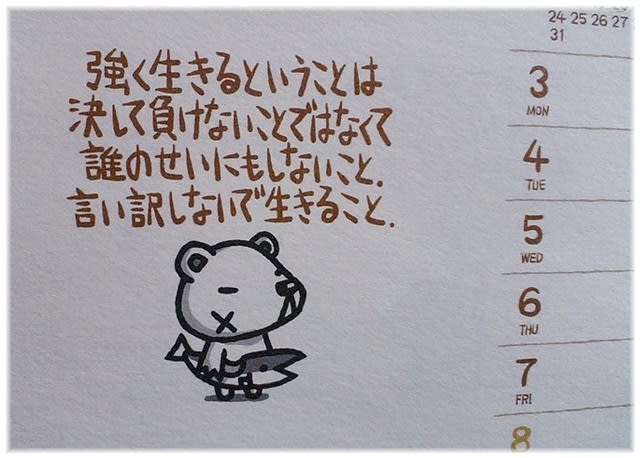 強く生きるということは
決して負けないことではなくて
誰のせいにもしないこと.
言い訳しないで生きること.
24 25 26 27
31
3
MON
4
TUE
5
WED
6
THU
7
FRI
8